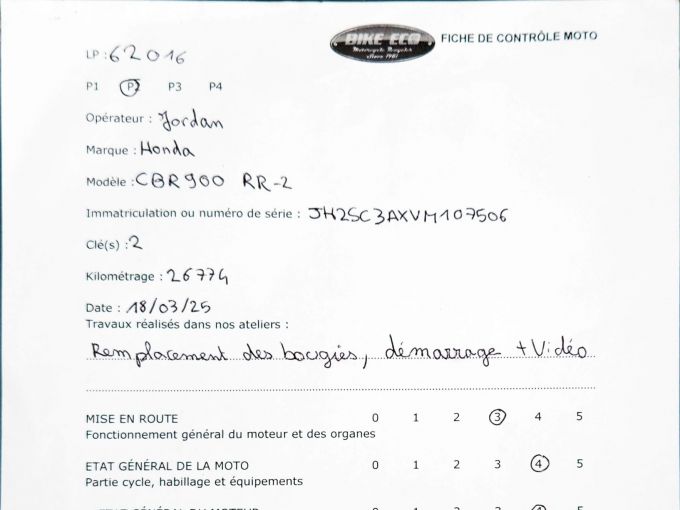 BIKE-ECO
Motorcycle Recycler
Since 1981
FICHE DE CONTRÔLE MOTO
LP : 62016
P1 P2 P3 P4
Opérateur : Jordan
Marque : Honda
Modèle : CBR900 RR-2
Immatriculation ou numéro de série : JH2SC3AXVM107506
Clé(s) : 2
Kilométrage : 26774
Date : 18/03/25
Travaux réalisés dans nos ateliers :
Remplacement des bougies, démarrage + Vidéo
MISE EN ROUTE 0 1 2 3 4 5
Fonctionnement général du moteur et des organes
ETAT GÉNÉRAL DE LA MOTO 0 1 2 3 4 5
Partie cycle, habillage et équipements